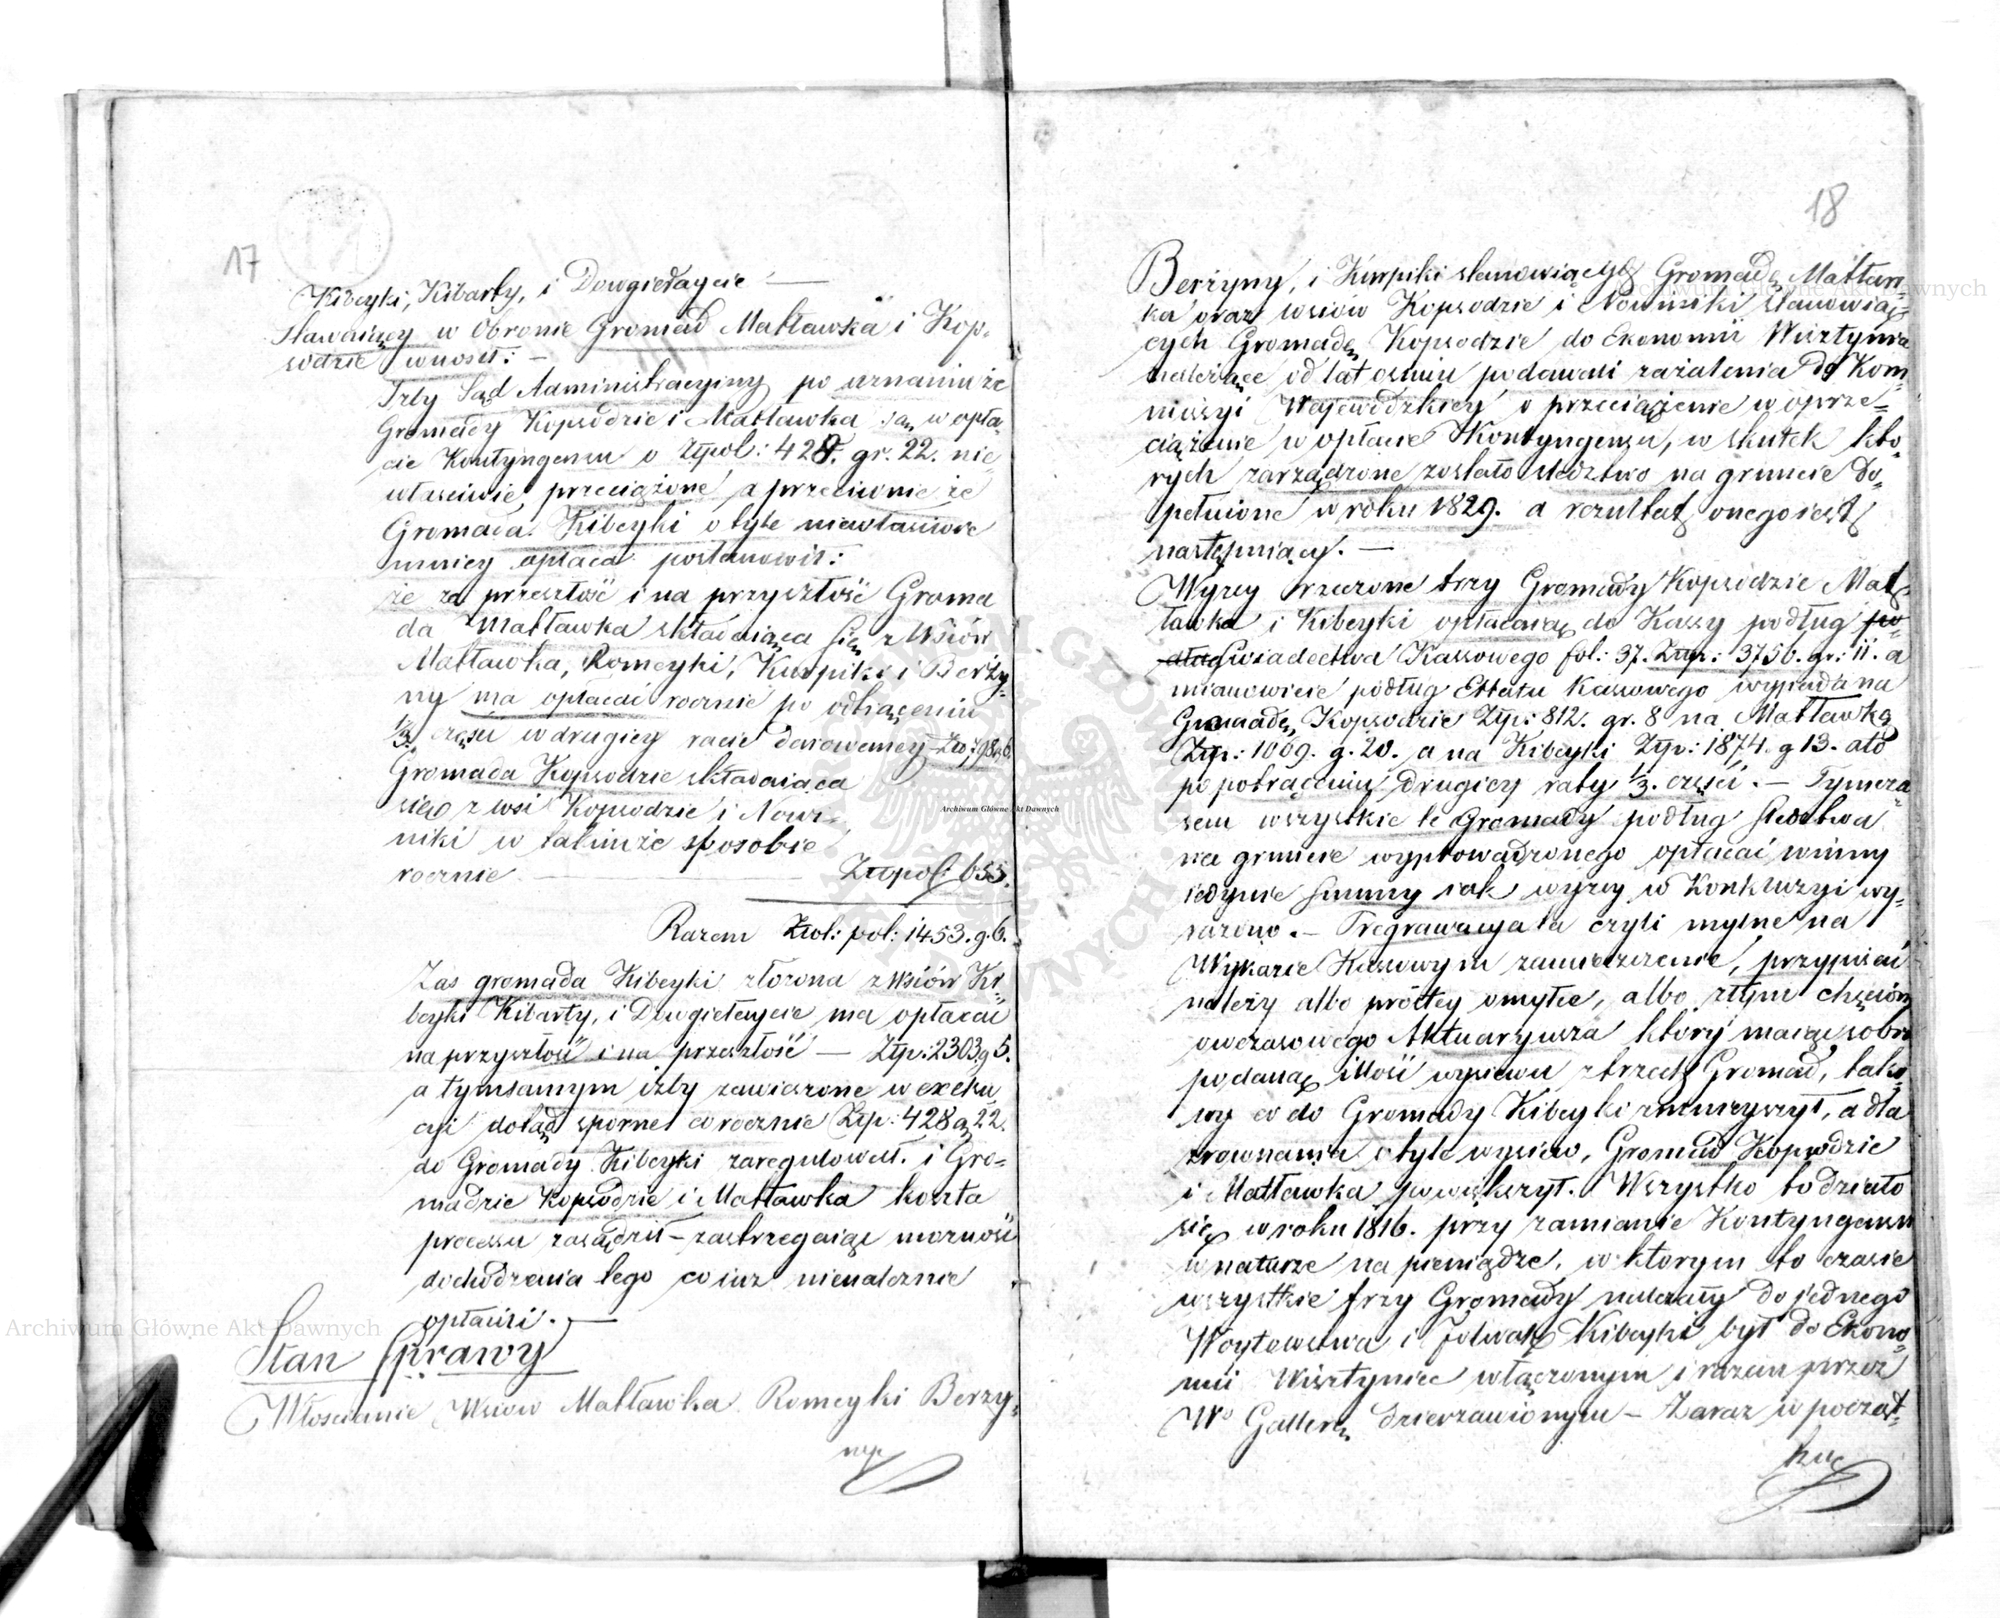 17
Kibeyki, Kibarty, i Dowgiełaycie —
Stawaiący w Obronie Gromad Matławka i Kop-
sodzie wnosił: —
Iżby Sąd Administracyiny po uznaniu że
Gromady Kopsodzie i Matławka są w opła-
cie Kontyngensu o Złpol: 428. gr. 22. nie
właściwie przeciążone, a przeciwnie że
Gromada Kibeyki o tyle niewłaściwie
mniey opłaca postanowił:
że za przeszłość i na przyszłość Groma
da Matławka składaiąca się z Wsiów
Matławka, Romeyki, Kurpiki i Berży-
ny ma opłacać rocznie po odtrąceniu
1/3 części w drugiey racie darowaney Złp 798 g 6.
Gromada Kopsodzie składaiąca
się z wsi Kopsodzie i Nowi-
niki w takimże sposobie
rocznie — Złopol: 655.
Razem Złol: pol: 1453. g. 6.
Zaś gromada Kibeyki złożona z Wsiów Ki-
beyki Kibarty, i Dowgiełaycie ma opłacać
na przyszłość i na przeszłość — Złp: 2303 g 5.
a tymsamym iżby zawieszone w exeku
cyi dotąd sporne corocznie Złp: 428 g 22.
do Gromady Kibeyki zaregulował. i Gro-
madzie Kopsodzie i Matławka koszta
processu zasądził — zastrzegaiąc możność
dochodzenia tego co iuż nienależnie
opłacili. —
Stan Sprawy
Włościanie Wsiow Matławka Romeyki Berży-
ny
18
Berżyny, i Kurpiki stanowiących Gromadę Matław-
ka oraz wsiów Kopsodzie i Nowiniki stanowią-
cych Gromadę Kopsodzie do Ekonomii Wisztyniec
należące od lat ośmiu podawali zażalenia do Kom-
missyi Wojewódzkiey o przeciążenie w oprze-
ciążenie w opłacie Kontyngensu, w skutek któ-
rych zarządzone zostało śledztwo na gruncie do-
pełnione w roku 1829. a rezultat onego iest
następuiący. —
Wyżey rzeczone trzy Gromady Kopsodzie Mat
ławka i Kibeyki opłacaią do Kassy podług po-
dług świadectwa Kassowego fol: 37. Złp: 3756. gr: 11. a
mianowicie podług Etatu Kassowego wypada na
Gromadę Kopsodzie Złp: 812. gr. 8 na Matławkę
Złp: 1069. g. 20. a na Kibeyki Złp: 1874. g 13. a to
po potrąceniu drugiey raty 1/3. części. — Tymcza-
sem wszystkie te Gromady podług śledztwa
na gruncie wyprowadzonego opłacać winny
iedynie summy iak wyżey w Konkluzyi wy-
rażono. — Pregrawacya ta czyli mylne na
Wykazie Kassowym zamieszczenie, przypisać
należy albo prostey omyłce, albo złym chęciom
owczasowego Aktuaryusza który maiąc sobie
podaną ilość wysiewu z trzech Gromad, tako-
wy co do Gromady Kibeyki zmnieyszył, a dla
zrownania o tyle wysiew, Gromad Kopsodzie
i Matławka powiększył. Wszystko to działo
się w roku 1816. przy zamianie Kontyngensu
w naturze na pieniądze, w ktorym to czasie
wszystkie trzy Gromady należały do jednego
Woytowstwa i folwark Kibeyki był do Ekono-
mii Wisztyniec włączonym i razem przez
Wo Gallerę dzierzawionym — Zaraz w począt-
ku
Archiwum Główne Akt Dawnych
Archiwum Główne Akt Dawnych
Archiwum Główne Akt Dawnych